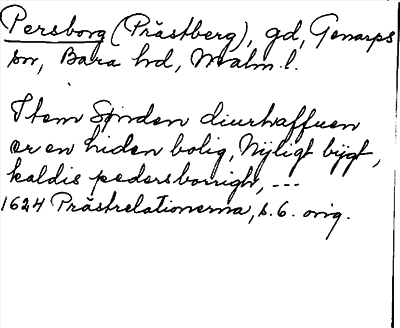 Persborg (Prästberg), gd, Genarps
sn, Bara hd, Malm. l.
Item Synden diurhaffuen
er en liden bolig, Nyligt bijgt,
kaldis pedersborrigh, ---
1624 Prästrelationerna, s. 6. orig.